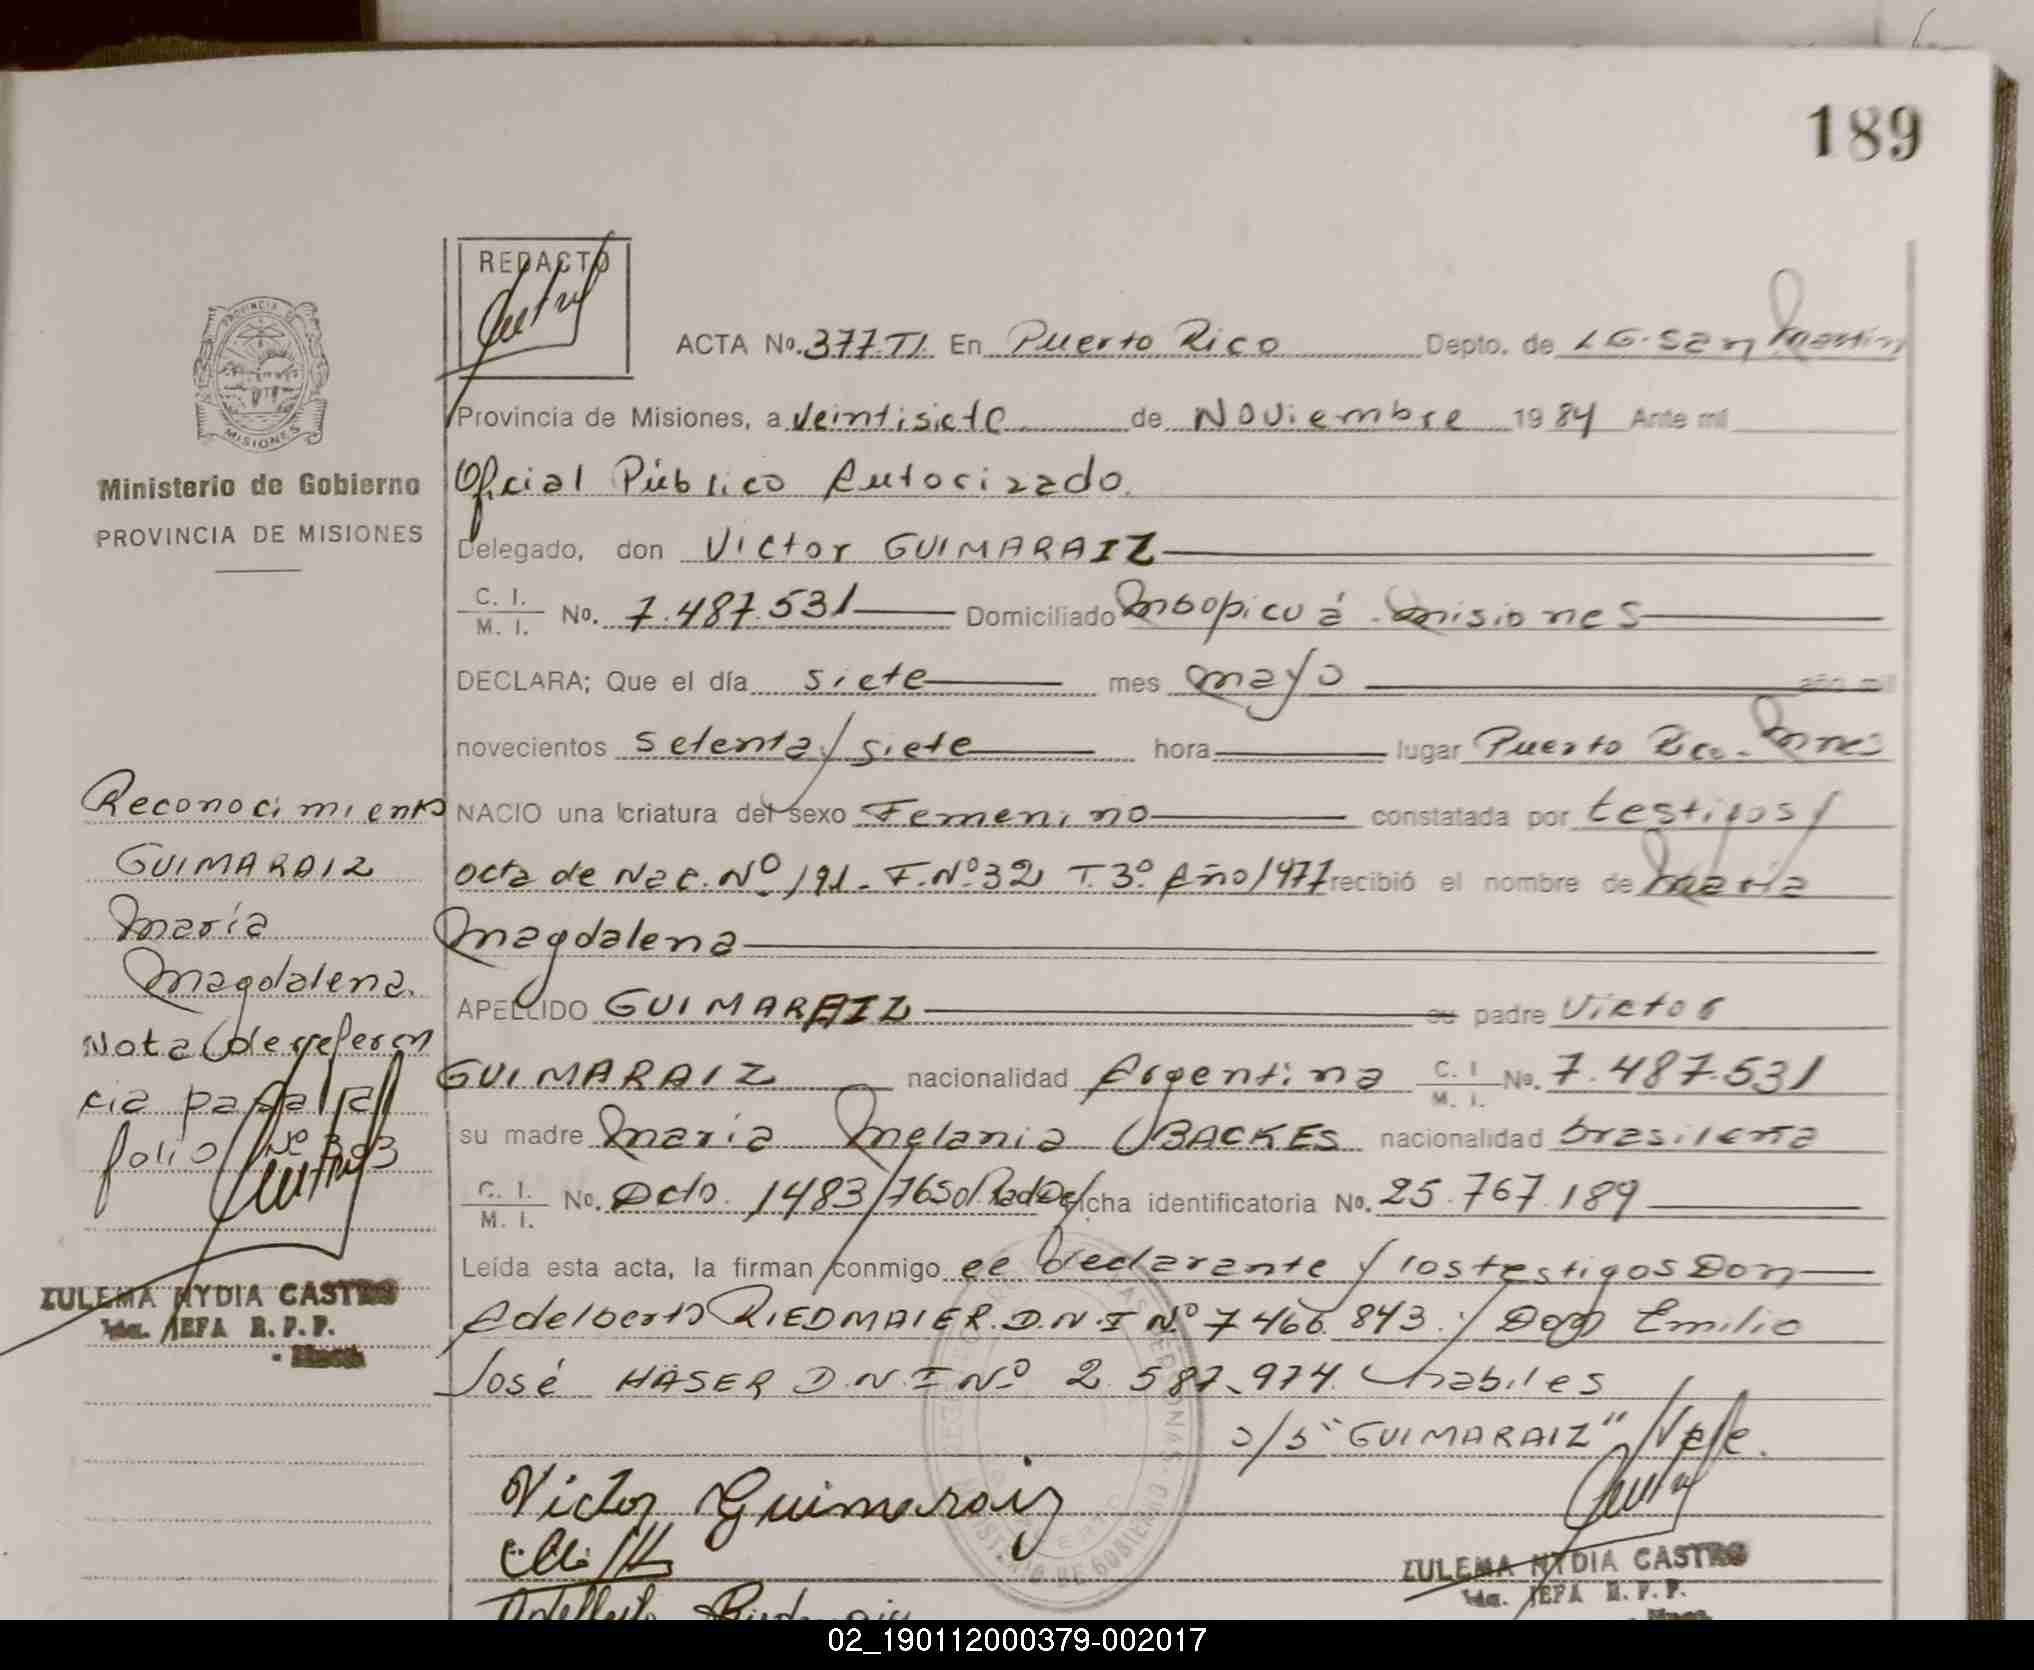 189
REDACTO
PROVINCIA DE
MISIONES
Ministerio de Gobierno
PROVINCIA DE MISIONES
ACTA No. 377.TI. En Puerto Rico Depto. de L.G. San Martín
Provincia de Misiones, a veintisiete de Noviembre 1984 Ante mí
Oficial Público Autorizado.
Delegado, don Victor GUIMARAIZ
C. I. / M. I. No. 7.487.531 Domiciliado Mbopicuá - Misiones
DECLARA; Que el día siete mes mayo año mil
novecientos setenta y siete hora lugar Puerto Rico - Mnes
NACIO una criatura del sexo Femenino constatada por testigos y
acta de Nac. Nº 191 - F. Nº 32 T. 3º Año 1977 recibió el nombre de María
Magdalena
APELLIDO GUIMARAIZ su padre Victor
GUIMARAIZ nacionalidad Argentina C. I. / M. I. No. 7.487.531
su madre María Melania BACKES nacionalidad brasileña
C. I. / M. I. No. Dcto. 1483/76 ficha identificatoria No. 25.767.189
Leída esta acta, la firman conmigo el declarante y los testigos Don
Adelberto RIEDMAIER. D.N.I Nº 7 466 843. y Don Emilio
José HASER D.N.I Nº 2 587.974. hábiles
s/s "GUIMARAIZ" Vale.
Victor Guimaraiz
Reconocimiento
GUIMARAIZ
María
Magdalena.
Nota de referen
cia pasa al
folio Nº 393
ZULEMA NYDIA CASTRO
JEFA R. P. P.
ZULEMA NYDIA CASTRO
JEFA R. P. P.
02_190112000379-002017